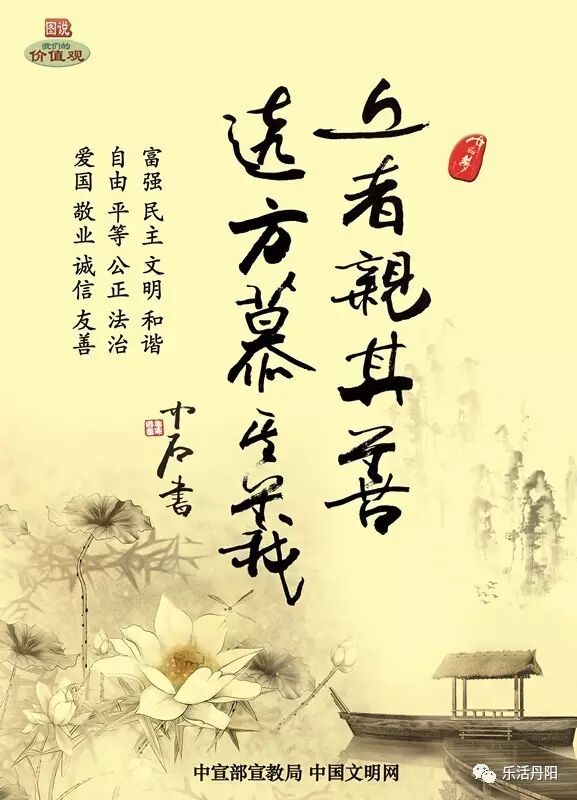 图说
我们的
价值观
近者親其善
遠方慕其義
富强 民主 文明 和谐
自由 平等 公正 法治
爱国 敬业 诚信 友善
中石書
中宣部宣教局 中国文明网
乐活丹阳